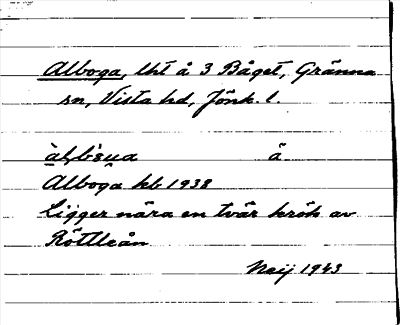 Alboga, lht å 3 Båget, Gränna
sn, Vista hd, Jönk. l.
å
Alboga kb 1938
Ligger nära en tvär krök av
Röttleån
Neij 1943